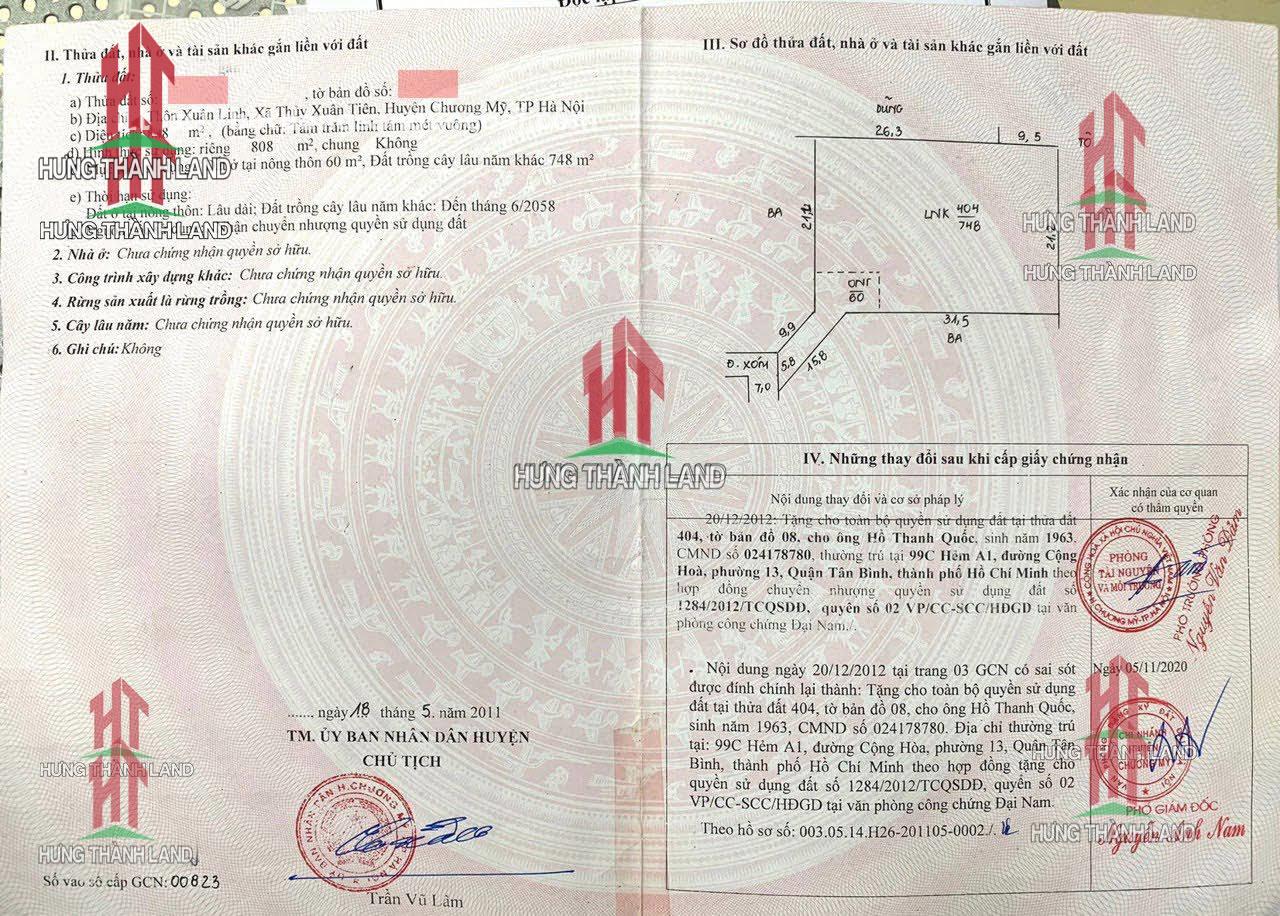 II. Thửa đất, nhà ở và tài sản khác gắn liền với đất
1. Thửa đất:
a) Thửa đất số: , tờ bản đồ số:
b) Địa chỉ: Thôn Xuân Linh, Xã Thủy Xuân Tiên, Huyện Chương Mỹ, TP Hà Nội
c) Diện 8 m², (bằng chữ: Tám trăm linh tám mét vuông)
d) Hình thức sử dụng: riêng 808 m², chung Không
ở tại nông thôn 60 m², Đất trồng cây lâu năm khác 748 m²
e) Thời hạn sử dụng:
Đất ở tại nông thôn: Lâu dài; Đất trồng cây lâu năm khác: Đến tháng 6/2058
nhận chuyển nhượng quyền sử dụng đất
2. Nhà ở: Chưa chứng nhận quyền sở hữu.
3. Công trình xây dựng khác: Chưa chứng nhận quyền sở hữu.
4. Rừng sản xuất là rừng trồng: Chưa chứng nhận quyền sở hữu.
5. Cây lâu năm: Chưa chứng nhận quyền sở hữu.
6. Ghi chú: Không
HT
HƯNG THÀNH LAND
HƯNG THÀNH LAND
....... ngày 18 tháng 5. năm 2011
TM. ỦY BAN NHÂN DÂN HUYỆN
CHỦ TỊCH
Trần Vũ Lâm
HT
HƯNG THÀNH LAND
HƯNG THÀNH LAND
Số vào sổ cấp GCN: 00823
HT
HƯNG THÀNH LAND
III. Sơ đồ thửa đất, nhà ở và tài sản khác gắn liền với đất
DŨNG
26,3
9,5
BA
LNK 404
748
ONT
60
9,9
31,5
BA
Đ. XÓM
5,8
15,8
7,0
HT
HƯNG THÀNH LAND
HƯNG THÀNH LAND
IV. Những thay đổi sau khi cấp giấy chứng nhận
Nội dung thay đổi và cơ sở pháp lý
Xác nhận của cơ quan
có thẩm quyền
20/12/2012: Tặng cho toàn bộ quyền sử dụng đất tại thửa đất
404, tờ bản đồ 08, cho ông Hồ Thanh Quốc, sinh năm 1963,
CMND số 024178780, thường trú tại 99C Hẻm A1, đường Cộng
Hoà, phường 13, Quận Tân Bình, thành phố Hồ Chí Minh theo
hợp đồng chuyển nhượng quyền sử dụng đất số
1284/2012/TCQSDĐ, quyển số 02 VP/CC-SCC/HĐGD tại văn
phòng công chứng Đại Nam./.
PHÒNG
TÀI NGUYÊN
VÀ MÔI TRƯỜNG
PHÓ TRƯỞNG PHÒNG
Nội dung ngày 20/12/2012 tại trang 03 GCN có sai sót
được đính chính lại thành: Tặng cho toàn bộ quyền sử dụng
đất tại thửa đất 404, tờ bản đồ 08, cho ông Hồ Thanh Quốc,
sinh năm 1963, CMND số 024178780. Địa chỉ thường trú
tại: 99C Hẻm A1, đường Cộng Hòa, phường 13, Quận Tân
Bình, thành phố Hồ Chí Minh theo hợp đồng tặng cho
quyền sử dụng đất số 1284/2012/TCQSDĐ, quyển số 02
VP/CC-SCC/HĐGD tại văn phòng công chứng Đại Nam.
Theo hồ sơ số: 003.05.14.H26-201105-0002./.
Ngày 05/11/2020
CHI NHÁNH
HUYỆN
CHƯƠNG MỸ
PHÓ GIÁM ĐỐC
Nguyễn Anh Nam
HƯNG THÀNH LAND
HƯNG THÀNH LAND